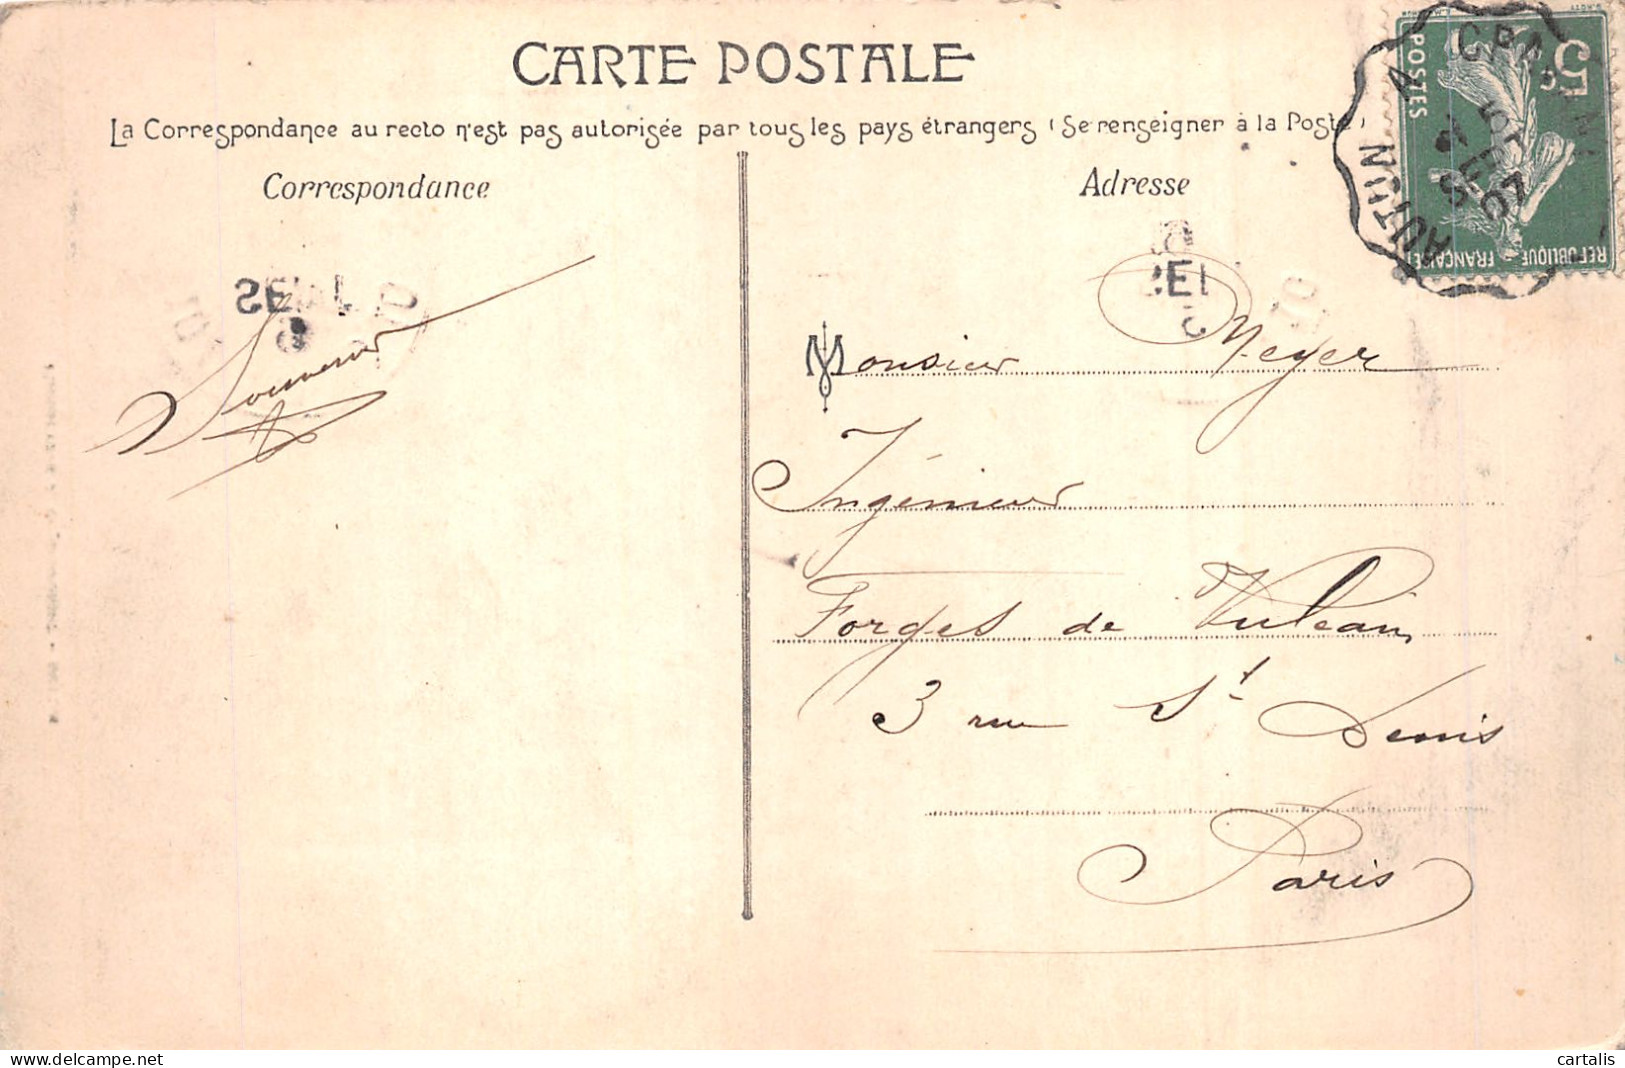 CARTE POSTALE
La Correspondance au recto n'est pas autorisée par tous les pays étrangers (Se renseigner à la Poste)
Correspondance
Adresse
POSTES
5c
REPUBLIQUE FRANÇAISE
AUTUN A
SEPT
07
Souvenir
Monsieur Meyer
Ingénieur
Forges de Vulcain
3 rue St Denis
Paris
cartalis
https://www.delcampe.net